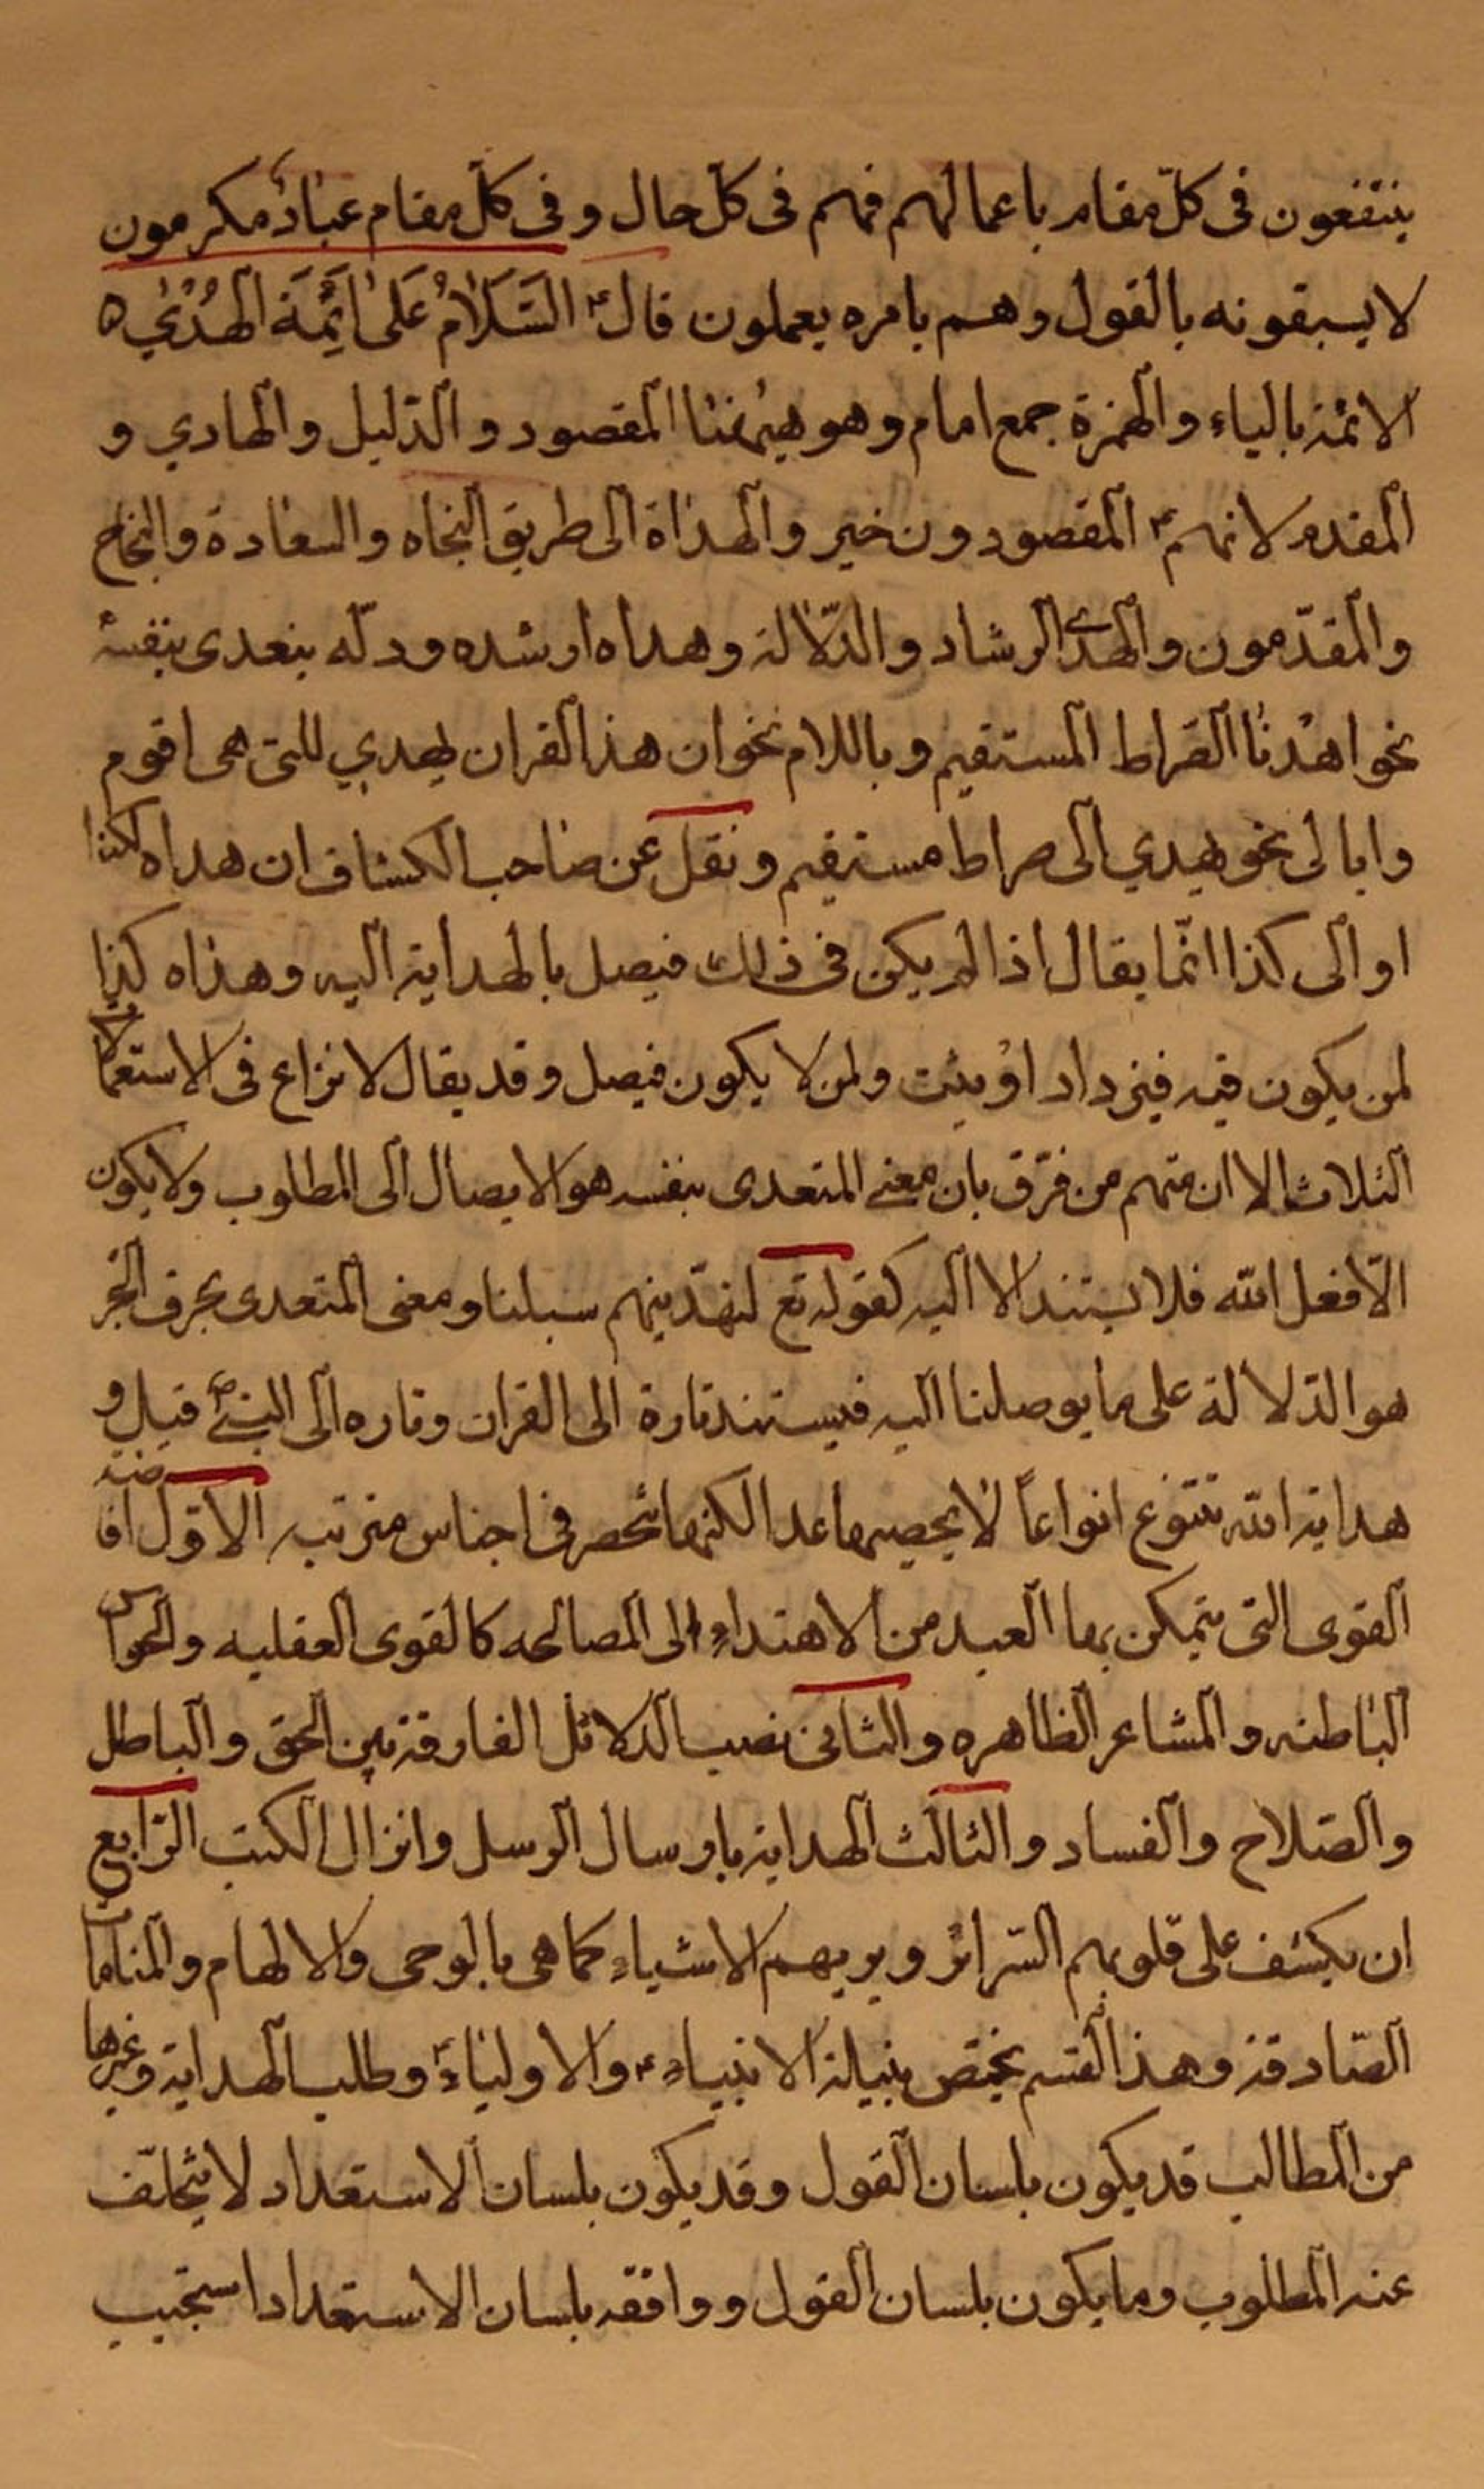 ينتفعون فى كلّ مقام باعمالهم فهم فى كل حال و فى كل مقام عبادٌ مكرمون
لا يسبقونه بالقول وهم بامره يعملون قال ع السَّلَامُ عَلىٰ اَئِمَّةِ الْهُدىٰ ه
الائمة بالياء والهمزة جمع امام وهو هيهنا المقصود و الدّليل والهادي و
المقدم لانهم ع المقصودون خير والهداة الى طريق النجاه والسعادة والنجاح
والمقدّمون والهدى الرشاد والدّلالة وهداه ارشده ودلّه يتعدى بنفسه
نحو اهْدنا الصّراط المستقيم وباللام نحو ان هذا القران يهدي للتى هى اقوم
وابالى نحو يهدي الى صراط مستقيم ونقل عن صاحب الكشاف ان هداه لكذا
او الى كذا انّما يقال اذا لم يكن فى ذلك فيصل بالهداية اليه وهداه كذا
لمن يكون فيه فيزداد او يثبت ولمن لا يكون فيصل وقد يقال لا نزاع فى الاستعمالات
الثلاث الا ان منهم من فرّق بان معنى المتعدى بنفسه هو الايصال الى المطلوب ولا يكون
الّا فعل الله فلا يستند الا اليه كقوله تع لنهدّينهم سبلنا ومعنى المتعدى بحرف الجر
هو الدّلالة على ما يوصلنا اليه فيستند تارة الى القران وتاره الى النبيّ ص قيل و
هداية الله تتنوع انواعاً لا يحصيها عد الكنها تنحصر فى اجناس مترتبه الاوّل افاضة
القوى التى يتمكن بها العبد من الاهتداء الى المصالحه كالقوى العقليه والحواس
الباطنه والمشاعر الظاهره والثانى نصب الدلائل الفارقة بين الحق والباطل
والصّلاح والفساد والثالث الهداية بارسال الرسل وانزال الكتب الرّابع
ان يكشف على قلوبهم السّرائر ويريهم الاشياء كما هى بالوحى والالهام والمنامات
الصّادقة وهذا القسم يختص بنيله الانبياء ع والاولياء ع وطلب الهداية وغيرها
من المطالب قد يكون بلسان القول وقد يكون بلسان الاستعداد لا يتخلّف
عنه المطلوب وما يكون بلسان القول ووافقه بلسان الاستعداد استجيب